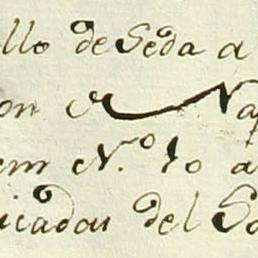 llo de Seda a
on
em N.º 10 a
icadou del So